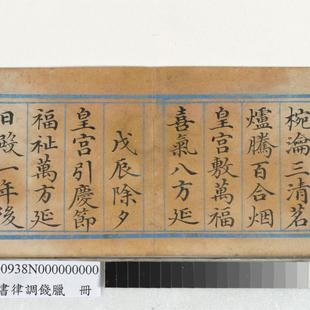 椀瀹三清茗
爐騰百合烟
皇宮敷萬福
喜氣八方延
戊辰除夕
皇宮引慶節
福祉萬方延
日殿一年後
0938N000000000
書律調錢臘 冊